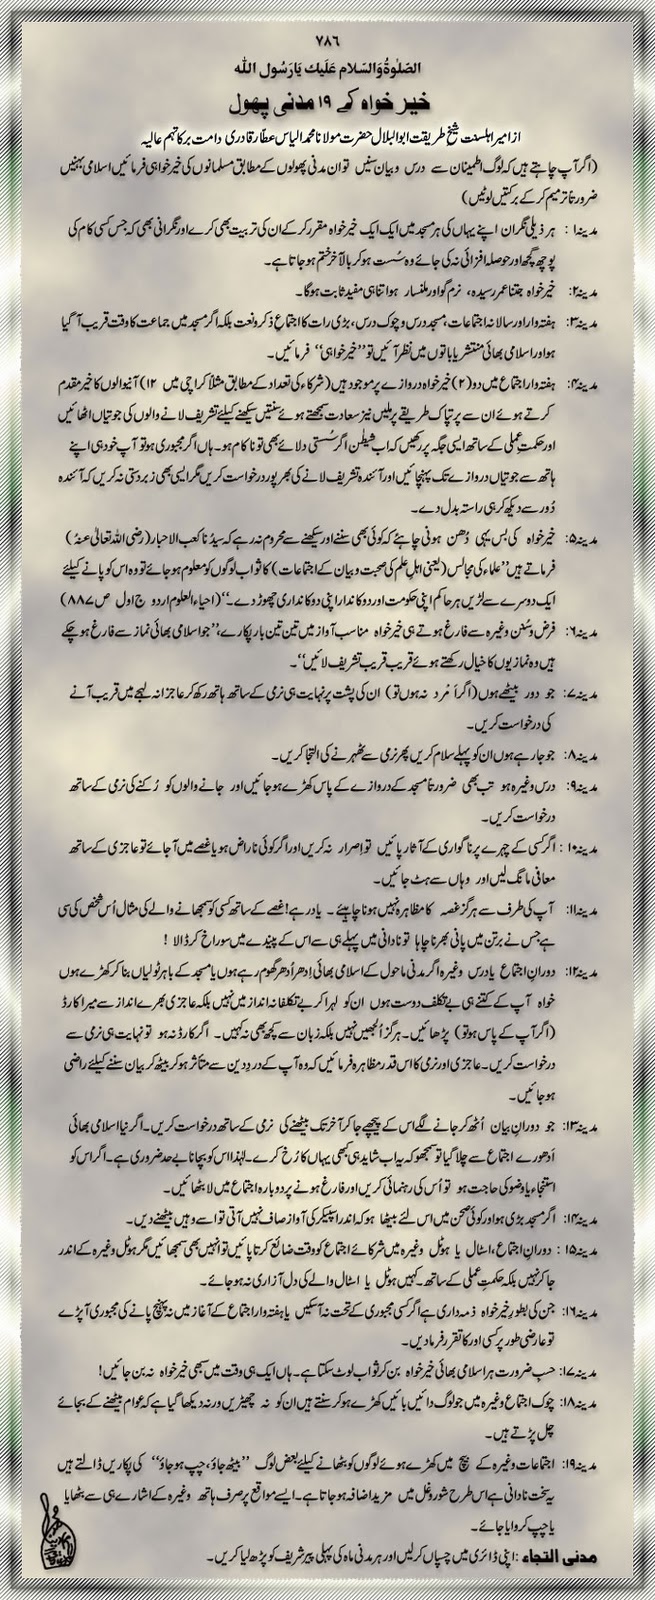 ۷۸۶
الصلوٰۃُ والسّلام عَلَیکَ یَا رَسُولَ اللہ
خیر خواہ کے ۱۹ مدنی پھول
از امیر اہلسنت شیخ طریقت ابوالبلال حضرت مولانا محمد الیاس عطار قادری دامت برکاتہم عالیہ
(اگر آپ چاہتے ہیں کہ لوگ اطمینان سے درس و بیان سنیں تو ان مدنی پھولوں کے مطابق مسلمانوں کی خیر خواہی فرمائیں اسلامی بہنیں
ضرورتاً ترمیم کر کے برکتیں لوٹیں)
مدینہ۱: ہر ذیلی نگران اپنے یہاں کی ہر مسجد میں ایک ایک خیر خواہ مقرر کر کے ان کی تربیت بھی کرے اور نگرانی بھی کہ جس کسی کام کی
پوچھ گچھ اور حوصلہ افزائی نہ کی جائے وہ سُست ہو کر بالآخر ختم ہو جاتا ہے۔
مدینہ۲: خیر خواہ جتنا عمر رسیدہ، نرم گو اور ملنسار ہوا تنا ہی مفید ثابت ہوگا۔
مدینہ۳: ہفتہ وار اور سالانہ اجتماعات، مسجد درس و چوک درس، بڑی رات کا اجتماع ذکر و نعت بلکہ اگر مسجد میں جماعت کا وقت قریب آ گیا
ہو اور اسلامی بھائی منتشر یا باتوں میں نظر آئیں تو ’’خیر خواہی‘‘ فرمائیں۔
مدینہ۴: ہفتہ وار اجتماع میں دو (۲) خیر خواہ دروازے پر موجود ہیں (شرکاء کی تعداد کے مطابق مثلاً کراچی میں ۱۲) آنیوالوں کا خیر مقدم
کرتے ہوئے ان سے پر تپاک طریقے پر ملیں نیز سعادت سمجھتے ہوئے سنتیں سیکھنے کیلئے تشریف لانے والوں کی جوتیاں اٹھائیں
اور حکمتِ عملی کے ساتھ ایسی جگہ پر رکھیں کہ اب شیطٰن اگر سُستی دلائے بھی تو نا کام ہو۔ ہاں اگر مجبوری ہو تو آپ خود ہی اپنے
ہاتھ سے جوتیاں دروازے تک پہنچائیں اور آئندہ تشریف لانے کی بھر پور درخواست کریں مگر ایسی بھی زبردستی نہ کریں کہ آئندہ
دُور سے دیکھ کر ہی راستہ بدل دے۔
مدینہ۵: خیر خواہ کی بس یہی دُھن ہونی چاہئے کہ کوئی بھی سننے اور سیکھنے سے محروم نہ رہے کہ سیدُنا کعب الاحبار (رضی اللہ تعالیٰ عنہٗ)
فرماتے ہیں ’’علماء کی مجالس (یعنی اہلِ علم کی صحبت و بیان کے اجتماعات) کا ثواب لوگوں کو معلوم ہو جائے تو وہ اس کو پانے کیلئے
ایک دوسرے سے لڑیں ہر حاکم اپنی حکومت اور دوکاندار اپنی دوکانداری چھوڑ دے۔‘‘ (احیاء العلوم اردو ج اول ص ۸۸۷)
مدینہ۶: فرض و سُنن وغیرہ سے فارغ ہوتے ہی خیر خواہ مناسب آواز میں تین تین بار پکارے، ’’جو اسلامی بھائی نماز سے فارغ ہو چکے
ہیں وہ نمازیوں کا خیال رکھتے ہوئے قریب قریب تشریف لائیں‘‘۔
مدینہ۷: جو دور بیٹھے ہوں (اگر اَمْرد نہ ہوں تو) ان کی پشت پر نہایت ہی نرمی کے ساتھ ہاتھ رکھ کر عاجزانہ لہجے میں قریب آنے
کی درخواست کریں۔
مدینہ۸: جو جا رہے ہوں ان کو پہلے سلام کریں پھر نرمی سے ٹھہرنے کی التجا کریں۔
مدینہ۹: درس وغیرہ ہو تب بھی ضرورتاً مسجد کے دروازے کے پاس کھڑے ہو جائیں اور جانے والوں کو رُکنے کی نرمی کے ساتھ
درخواست کریں۔
مدینہ۱۰: اگر کسی کے چہرے پر ناگواری کے آثار پائیں تو اِصرار نہ کریں اور اگر کوئی ناراض ہو یا غصے میں آ جائے تو عاجزی کے ساتھ
معافی مانگ لیں اور وہاں سے ہٹ جائیں۔
مدینہ۱۱: آپ کی طرف سے ہرگز غصہ کا مظاہرہ نہیں ہونا چاہیئے۔ یاد رہے! غصے کے ساتھ کسی کو سمجھانے والے کی مثال اُس شخص کی سی
ہے جس نے برتن میں پانی بھرنا چاہا تو نادانی میں پہلے ہی سے اس کے پیندے میں سوراخ کر ڈالا!
مدینہ۱۲: دورانِ اجتماع یا درس وغیرہ اگر مدنی ماحول کے اسلامی بھائی اِدھر اُدھر گھوم رہے ہوں یا مسجد کے باہر ٹولیاں بنا کر کھڑے ہوں
خواہ آپ کے کتنے ہی بے تکلف دوست ہوں ان کو لہرا کر بے تکلفانہ انداز میں نہیں بلکہ عاجزی بھرے انداز سے میرا کارڈ
(اگر آپ کے پاس ہو تو) پڑھائیں۔ ہرگز اُلجھیں نہیں بلکہ زبان سے کچھ بھی نہ کہیں۔ اگر کارڈ نہ ہو تو نہایت ہی نرمی سے
درخواست کریں۔ عاجزی اور نرمی کا اس قدر مظاہرہ فرمائیں کہ وہ آپ کے دردِ دین سے متأثر ہو کر بیٹھ کر بیان سننے کیلئے راضی
ہو جائیں۔
مدینہ۱۳: جو دورانِ بیان اُٹھ کر جانے لگے اس کے پیچھے جا کر آخر تک بیٹھنے کی نرمی کے ساتھ درخواست کریں۔ اگر نیا اسلامی بھائی
اُدھورے اجتماع سے چلا گیا تو سمجھو کہ یہ اب شاید ہی کبھی یہاں کا رُخ کرے۔ لہٰذا اس کو بچانا بے حد ضروری ہے۔ اگر اس کو
استنجاء یا وضو کی حاجت ہو تو اُس کی رہنمائی کریں اور فارغ ہونے پر دوبارہ اجتماع میں لا بٹھائیں۔
مدینہ۱۴: اگر مسجد بڑی ہو اور کوئی صحن میں اس لئے بیٹھا ہو کہ اندر اسپیکر کی آواز صاف نہیں آتی تو اسے وہیں بیٹھنے دیں۔
مدینہ۱۵: دورانِ اجتماع، اسٹال یا ہوٹل وغیرہ میں شرکائے اجتماع کو وقت ضائع کرتا پائیں تو انہیں بھی سمجھائیں مگر ہوٹل وغیرہ کے اندر
جا کر نہیں بلکہ حکمتِ عملی کے ساتھ۔ کہیں ہوٹل یا اسٹال والے کی دل آزاری نہ ہو جائے۔
مدینہ۱۶: جن کی بطورِ خیر خواہ ذمہ داری ہے اگر کسی مجبوری کے تحت نہ آ سکیں یا ہفتہ وار اجتماع کے آغاز میں نہ پہنچ پانے کی مجبوری آ پڑے
تو عارضی طور پر کسی اور کا تقرر فرما دیں۔
مدینہ۱۷: حسبِ ضرورت ہر اسلامی بھائی خیر خواہ بن کر ثواب لوٹ سکتا ہے۔ ہاں ایک ہی وقت میں سبھی خیر خواہ نہ بن جائیں!
مدینہ۱۸: چوک اجتماع وغیرہ میں جو لوگ دائیں بائیں کھڑے ہو کر سنتے ہیں ان کو نہ چھیڑیں ورنہ دیکھا گیا ہے کہ عوام بیٹھنے کے بجائے
چل پڑتے ہیں۔
مدینہ۱۹: اجتماعات وغیرہ کے بیچ میں کھڑے ہوئے لوگوں کو بٹھانے کیلئے بعض لوگ ’’بیٹھ جاؤ، چپ ہو جاؤ‘‘ کی پکاریں ڈالتے ہیں
یہ سخت نادانی ہے اس طرح شور و غل میں مزید اضافہ ہو جاتا ہے۔ ایسے مواقع پر صرف ہاتھ وغیرہ کے اشارے ہی سے بٹھایا
یا چپ کروایا جائے۔
مدنی التجاء: اپنی ڈائری میں چسپاں کر لیں اور ہر مدنی ماہ کی پہلی پیر شریف کو پڑھ لیا کریں۔